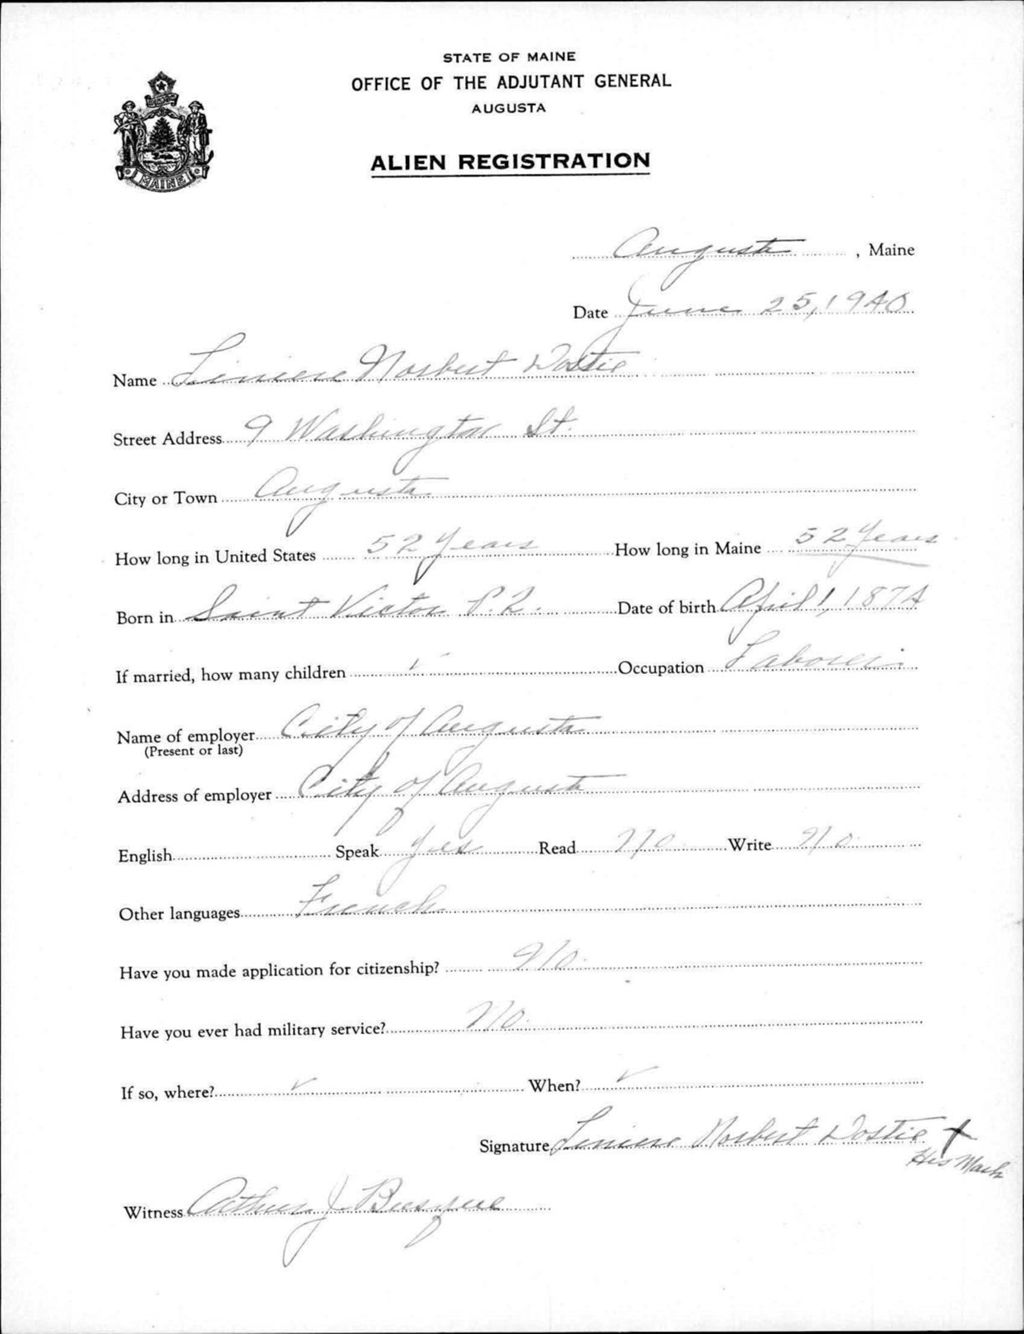 STATE OF MAINE
OFFICE OF THE ADJUTANT GENERAL
AUGUSTA
MAINE
ALIEN REGISTRATION
Augusta, Maine
Date June 25, 1940
Name Liniere Norbert Dostie
Street Address 9 Washington St.
City or Town Augusta
How long in United States 52 Years How long in Maine 52 Years
Born in Saint Victor P.Q. Date of birth April 1, 1874
If married, how many children ✓ Occupation Laborer
Name of employer City of Augusta
(Present or last)
Address of employer City of Augusta
English Speak Yes Read No Write No
Other languages French
Have you made application for citizenship? No
Have you ever had military service? No
If so, where? ✓ When? ✓
Signature Liniere Norbert Dostie X
His Mark
Witness Arthur J.